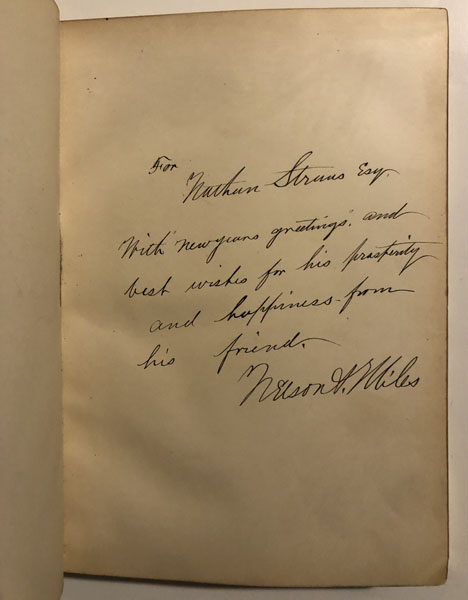 For
Nathan Straus Esq.
With "new years greetings" and
best wishes for his prosperity
and happiness from
his friend.
Nelson A. Miles